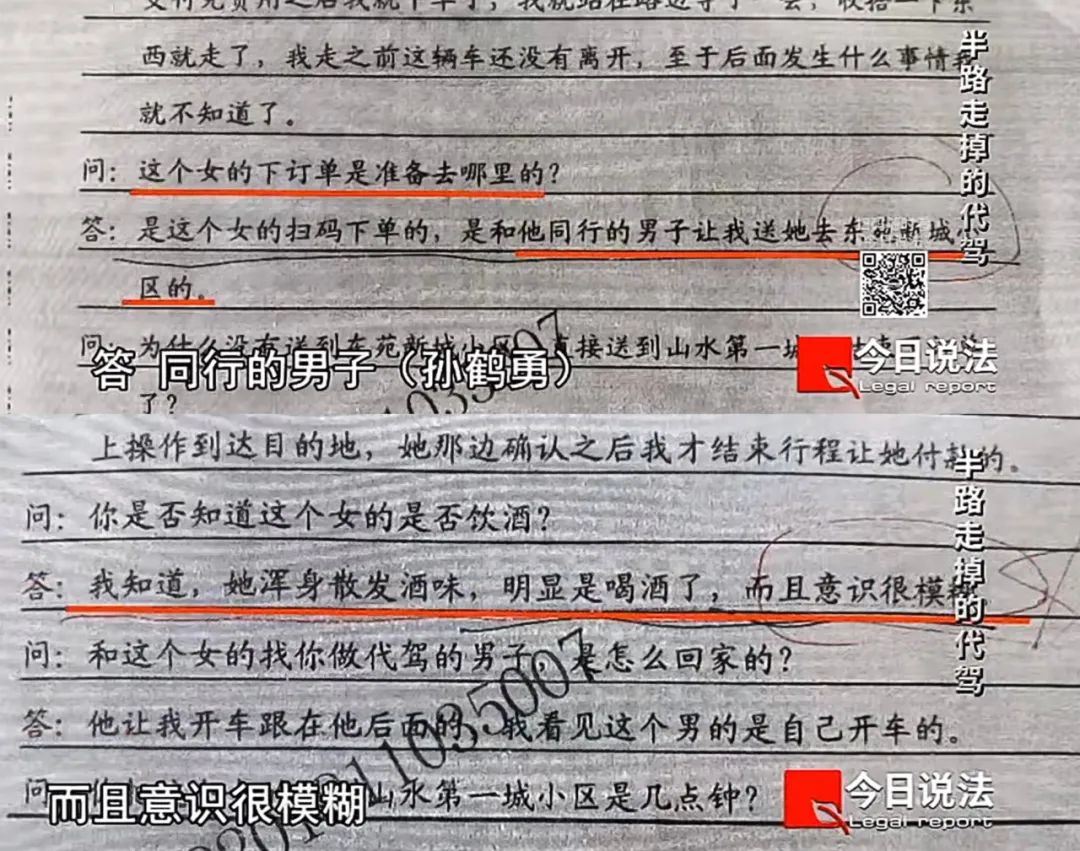 西就走了，我走之前这辆车还没有离开，至于后面发生什么事情我
就不知道了。
问：这个女的下订单是准备去哪里的？
答：是这个女的扫码下单的，是和他同行的男子让我送她去东苑新城小
区的。
问：为什么没有送到东苑新城小区，直接送到山水第一城
了？
答 同行的男子（孙鹤勇）
半路走掉的代驾
今日说法
Legal report
上操作到达目的地，她那边确认之后我才结束行程让她付款的。
问：你是否知道这个女的是否饮酒？
答：我知道，她浑身散发酒味，明显是喝酒了，而且意识很模糊
问：和这个女的找你做代驾的男子，是怎么回家的？
答：他让我开车跟在他后面的，我看见这个男的是自己开车的。
问 山水第一城小区是几点钟？
而且意识很模糊
半路走掉的代驾
今日说法
Legal report